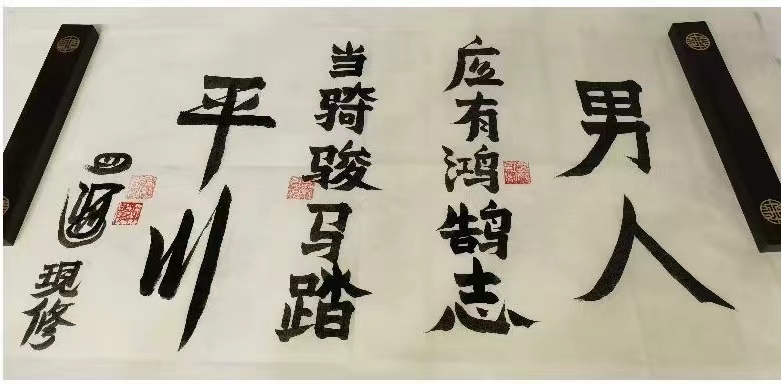 男人
应有鸿鹄志
当骑骏马踏
平川
現修